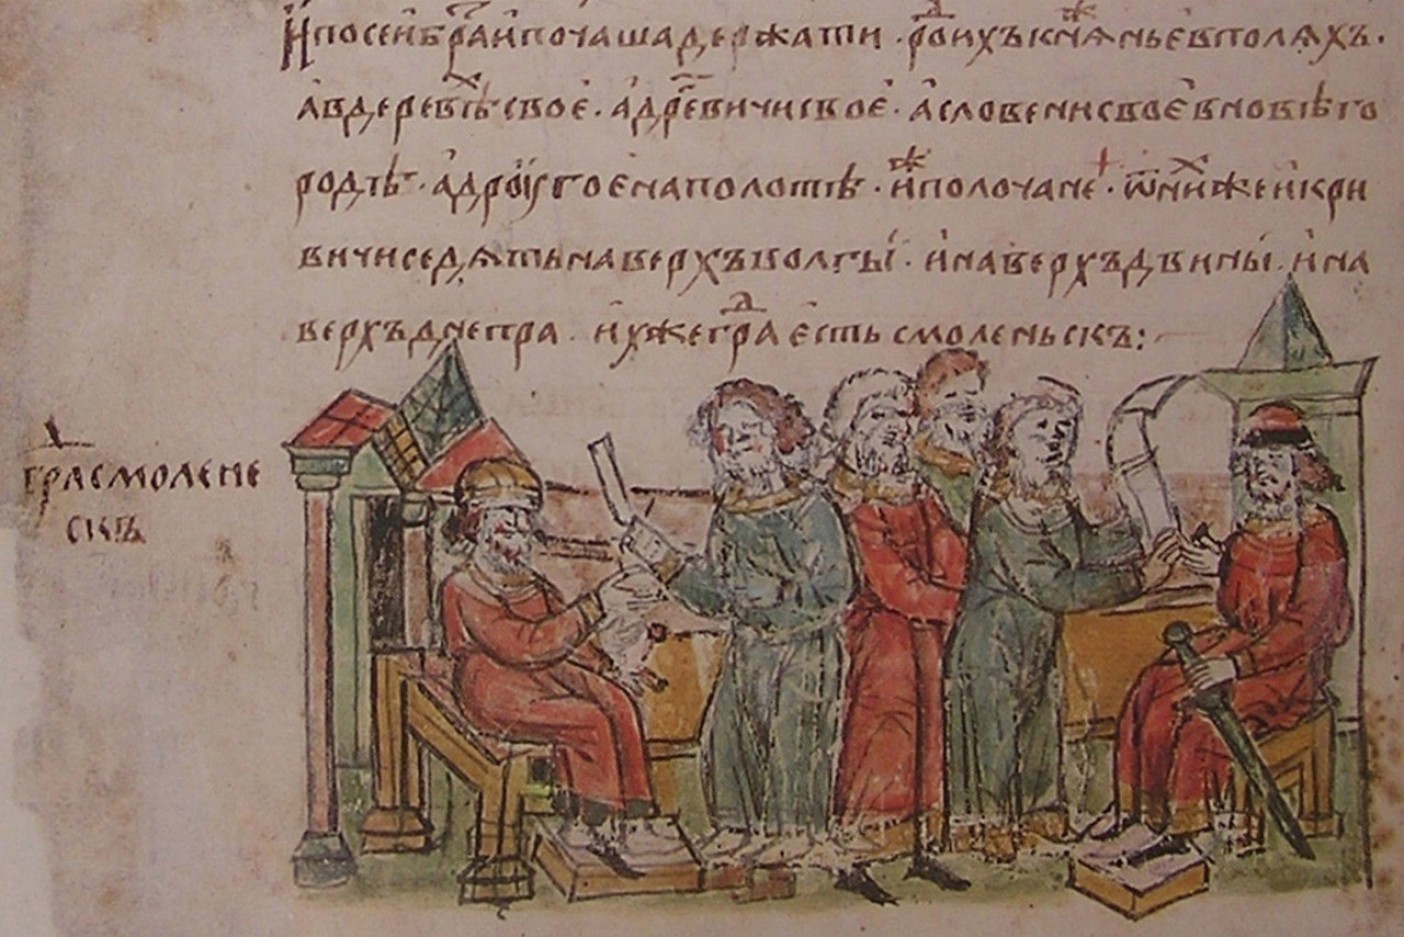 И по сеи бра҃и почаша держати · роⷣ ихъ княⷤнье в поляхъ ·
а в деревлⷯѣ свое · а дре҃вичи свое · а словени свое в новѣго
родѣ · а дрꙋгое на полотѣ · иⷤ полочане · ѿ ниⷯже и кри
вичи седѧть на верхъ волгы · и на верхъ двины · и на
верхъ днепра · ихже граⷣ есть смоленьскъ :
граⷣ смолене
скъ